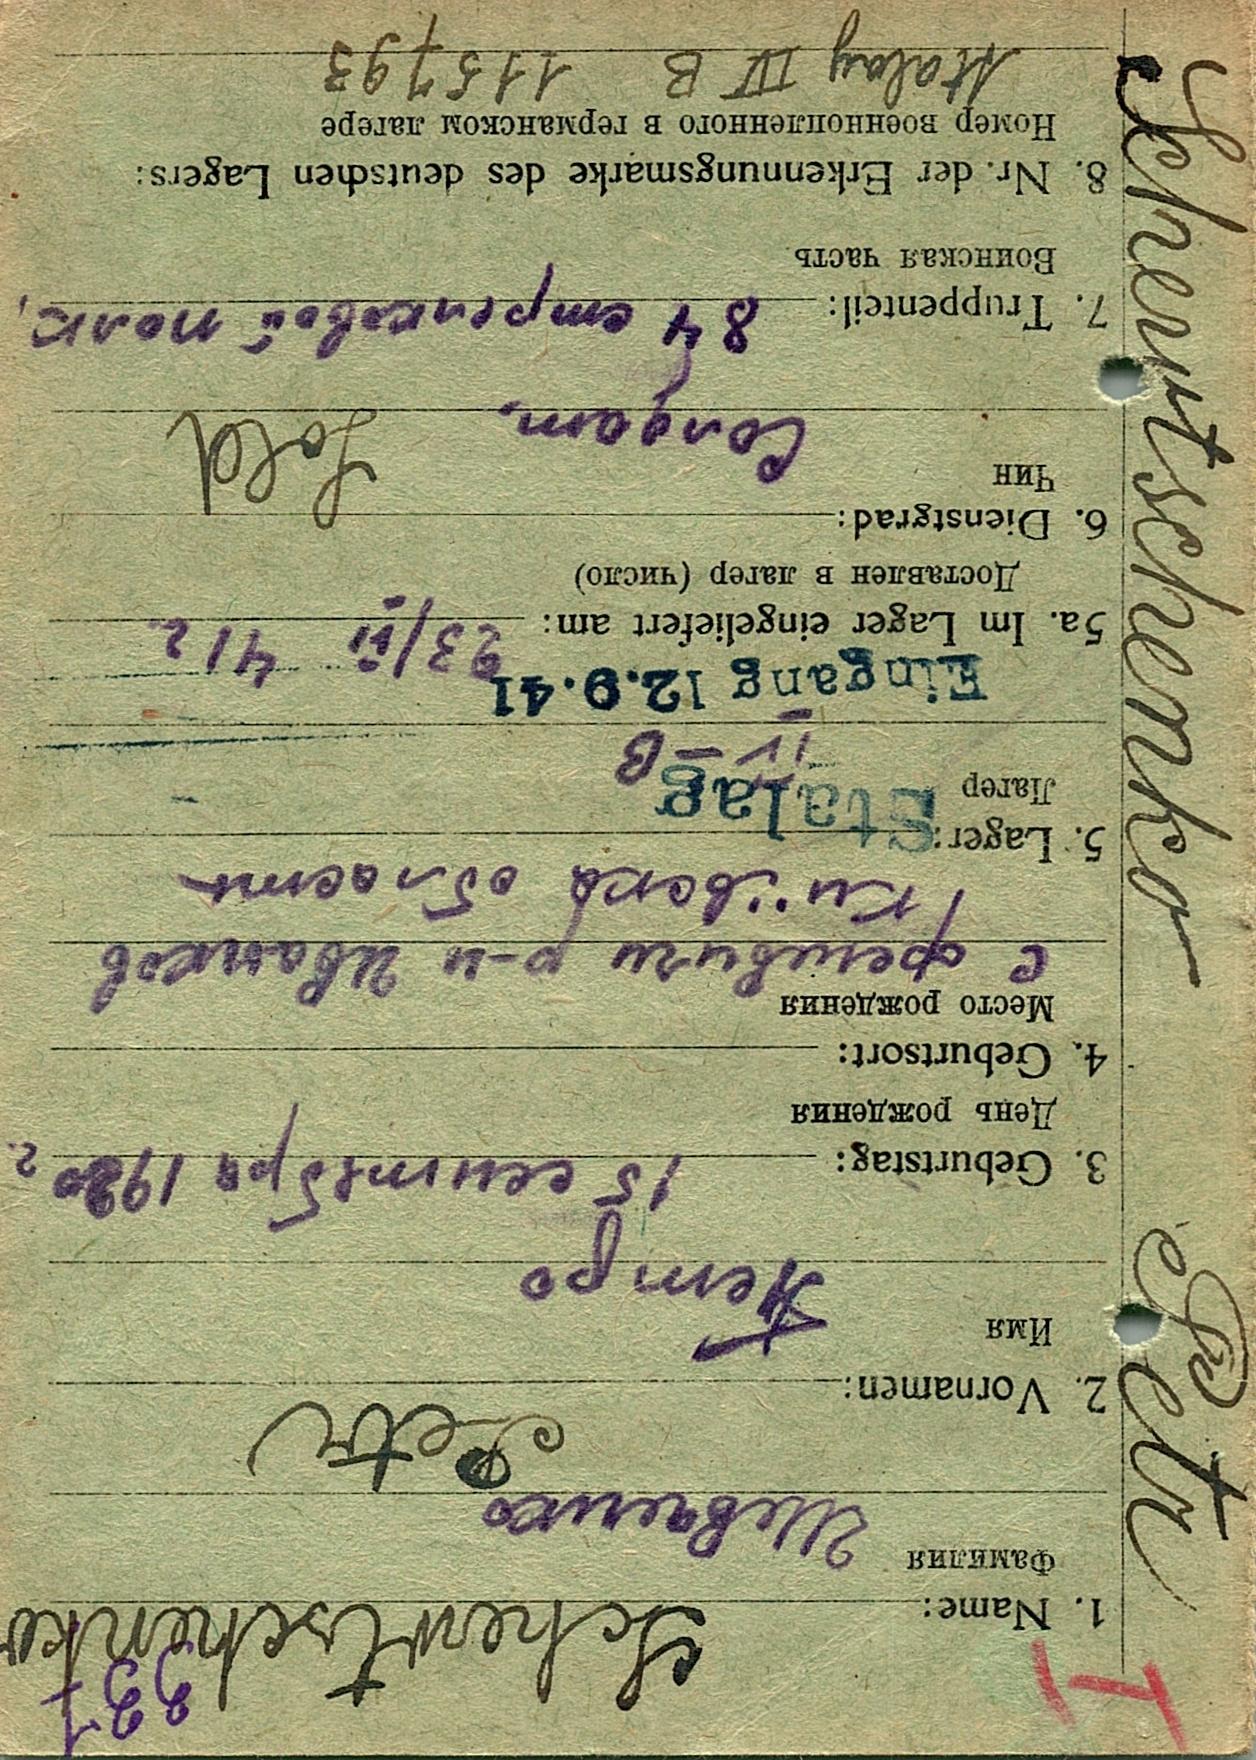 Schewtschenko Petr
1. Name: Schewtschenko
Фамилия Шевченко
Petr
2. Vornamen:
Имя Петро
3. Geburtstag: 15 сентября 1920 г.
День рождения
4. Geburtsort:
Место рождения
с р-н Иванков
Київска область
5. Lager: Stalag
Лагер IV-B
Eingang 12.9.41
5a. Im Lager eingeliefert am: 23/VI 41 г.
Доставлен в лагер (число)
6. Dienstgrad: Sold
Чин Солдат.
7. Truppenteil: 84 стрелковой полк,
Воинская часть
8. Nr. der Erkennungsmarke des deutschen Lagers:
Номер военнопленного в германском лагере
Stalag IV B 115793